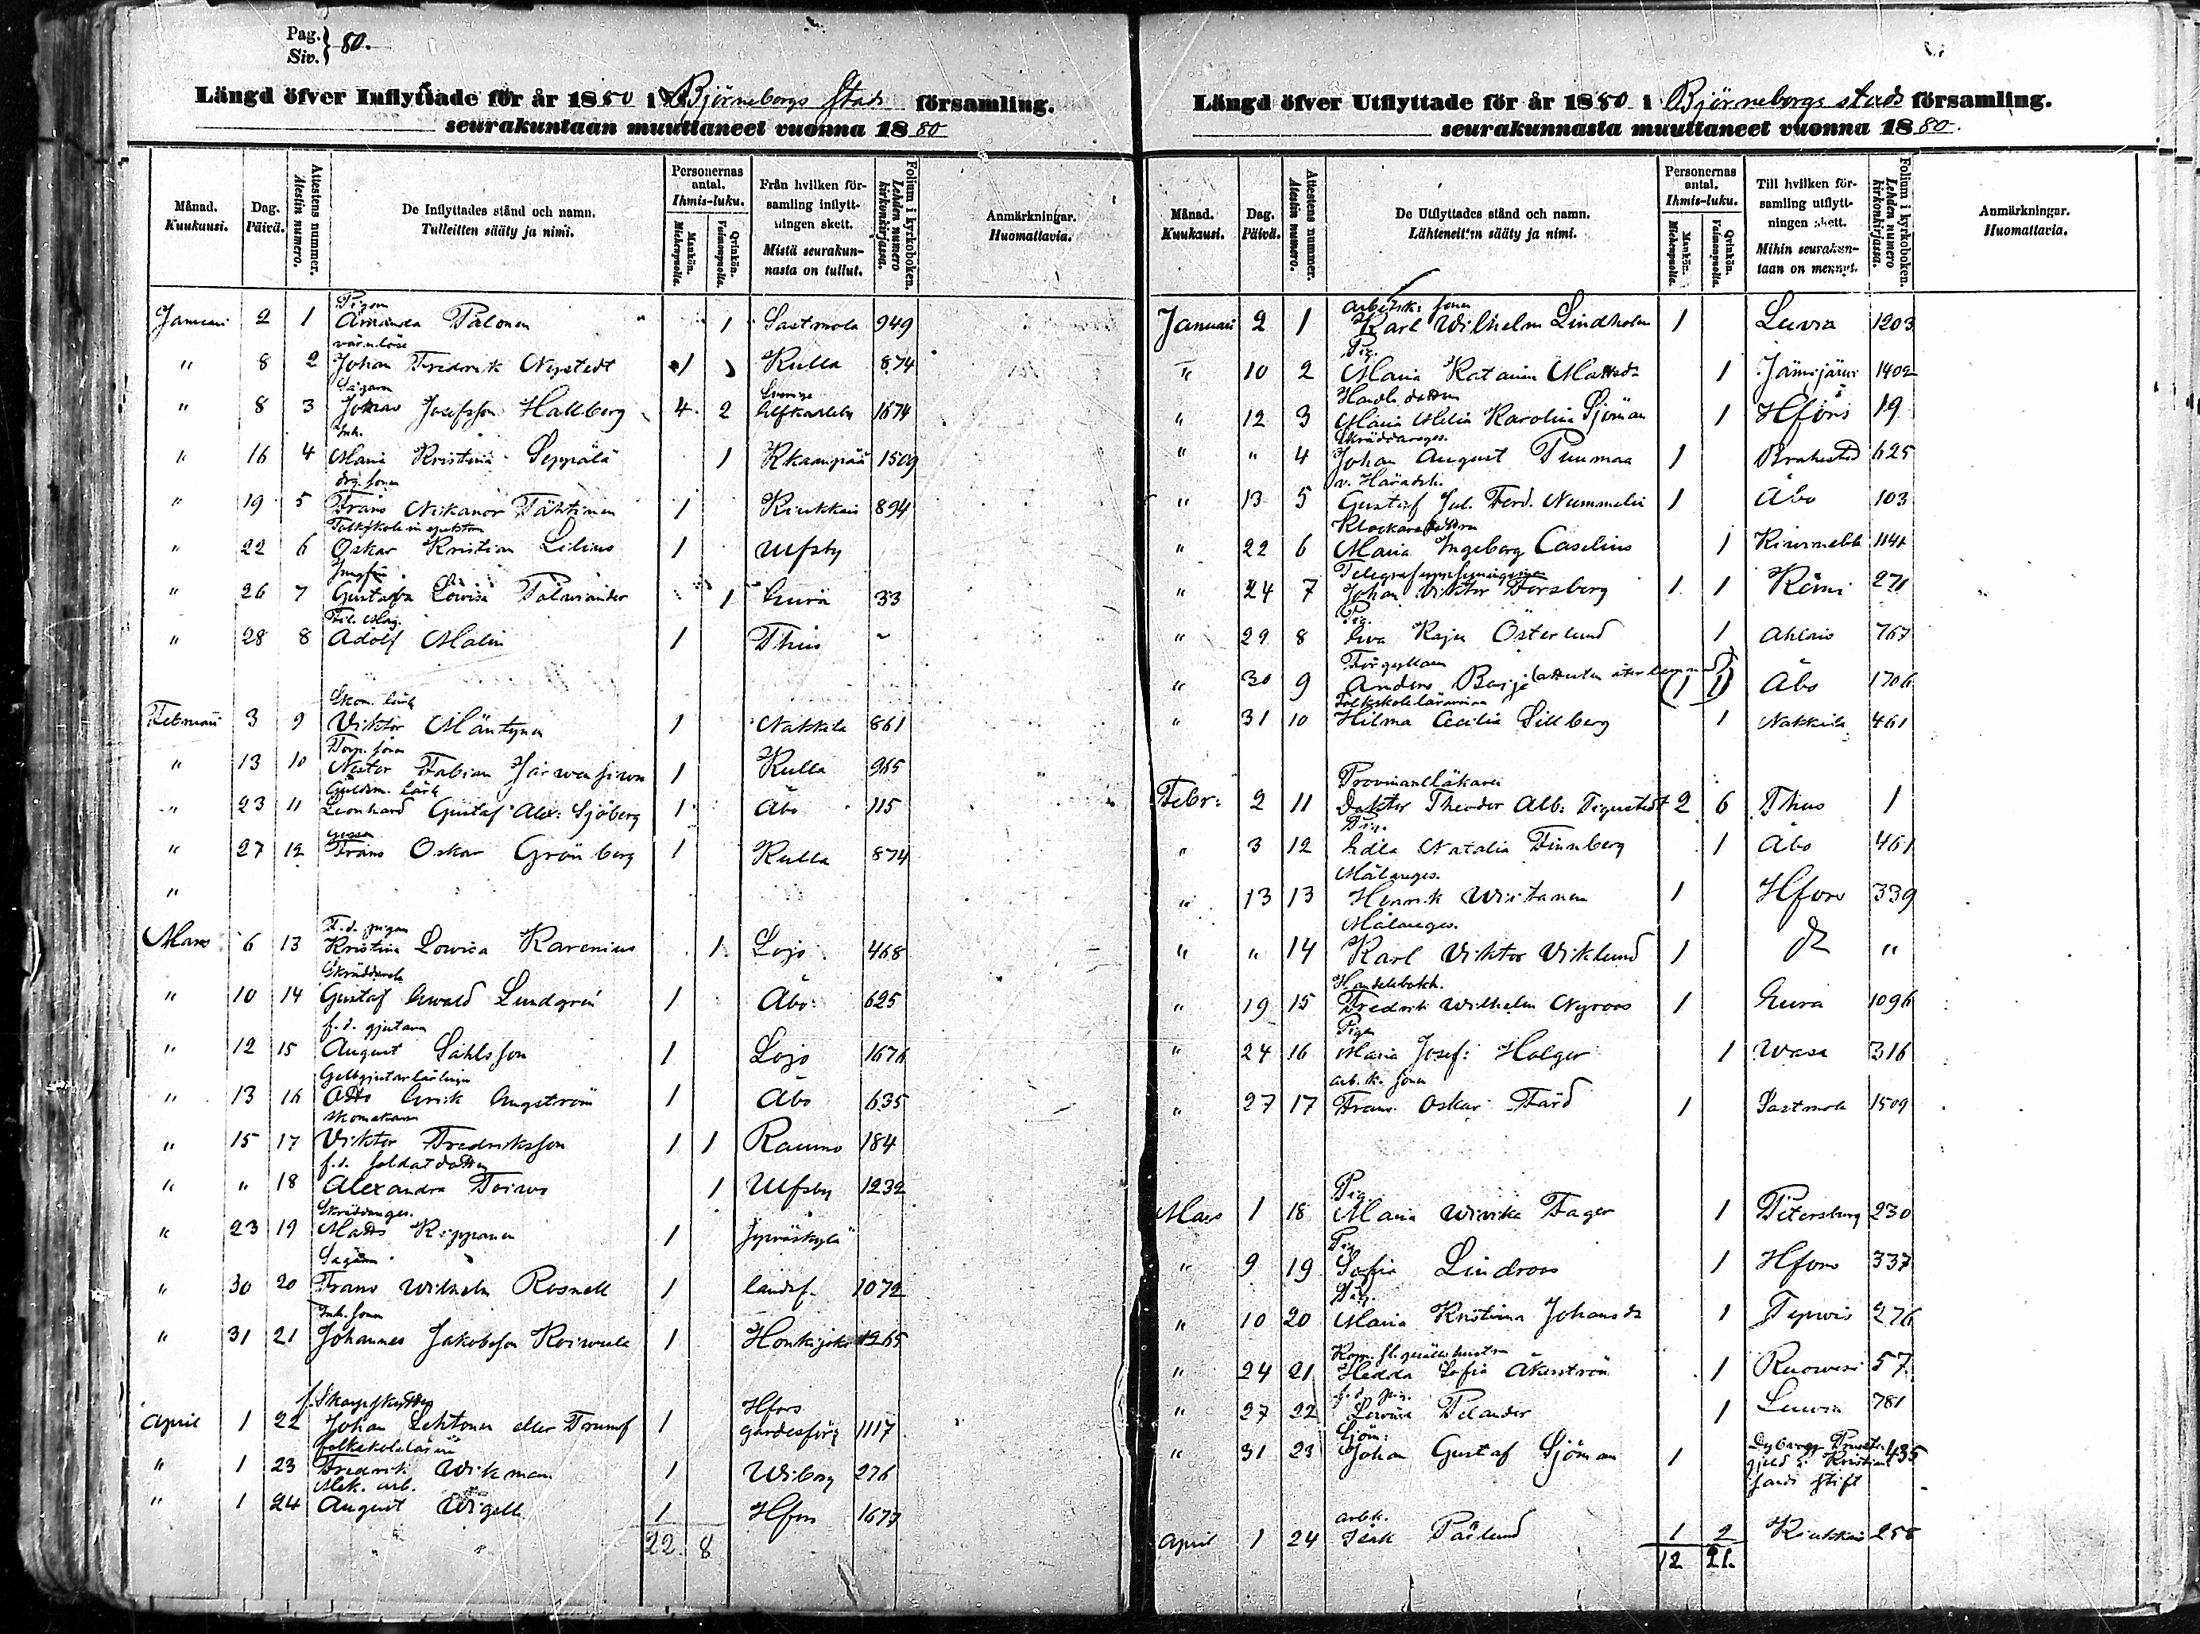 Pag. } 80.
Siv. }
Längd öfver Inflyttade för år 1880 i Björneborgs Stads församling.
seurakuntaan muuttaneet vuonna 1880
Månad. Kuukausi.
Dag. Päivä.
Attestens nummer. Atestin numero.
De Inflyttades stånd och namn. Tulleitten sääty ja nimi.
Personernas antal. Ihmis-luku.
Mankön. Miehenpuolia.
Qvinkön. Vaimonpuolia.
Från hvilken församling inflyttningen skett. Mistä seurakunnasta on tullut.
Folium i kyrkoboken. Lehden numero kirkonkirjassa.
Anmärkningar. Huomattavia.
Pigan
Januari 2 1 Amanda Palonen 1 Sastmola 949
värnlöse
" 8 2 Johan Fredrik Nystedt 1 Kulla 874
Sågaren Sverige
" 8 3 Johan Josefsson Hallberg 4 2 Elfkarleby 1674
Inh.
" 16 4 Maria Kristina Seppälä 1 Kkaanpää 1509
drg. sonen
" 19 5 Frans Nikanor Tähtinen 1 Kiukkais 894
Folkskoleinspektorn
" 22 6 Oskar Kristian Lilius 1 Ulfsby
Jungfrun
" 26 7 Gustafva Lovisa Palmander 1 Eura 33
Fil. Mag.
" 28 8 Adolf Malin 1 Thus ~
Skom. lärl.
Februari 3 9 Viktor Mäntynen 1 Nakkila 861
Torp. sonen
" 13 10 Nestor Fabian Järvensivu 1 Kulla 965
Guldsm. lärl.
" 23 11 Leonhard Gustaf Alex: Sjöberg 1 Åbo 115
gossen
" 27 12 Frans Oskar Grönberg 1 Kulla 874
"
F. d. pigan
Mars 6 13 Kristina Lovisa Karenius 1 Lojo 468
Skräddarelä
" 10 14 Gustaf Ewald Lundgren 1 Åbo 625
f. d. gjutaren
" 12 15 August Sahlsson 1 Lojo 1676
Gelbgjutarlärlingen
" 13 16 Otto Erik Engström 1 Åbo 635
skomakaren
" 15 17 Viktor Fredriksson 1 1 Raumo 184
f. d. soldatdottren
" " 18 Alexandra Toivos 1 Ulfsby 1232
Skräddareges.
" 23 19 Matts Kippanen 1 Jyväskylä
Sågaren
" 30 20 Frans Wilhelm Rosnell 1 landsf. 1072
Inh. sonen
" 31 21 Johannes Jakobsson Koivula 1 Honkijoki 1265
f. Skarpskytten Hfors
April 1 22 Johan Lehtonen eller Trumf 1 gardesförs 1117
folkskolelärar
" 1 23 Fredrik Wikman 1 Wiborg 276
Mek. arb.
" 1 24 August Wigell 1 Hfors 1677
22 8
Längd öfver Utflyttade för år 1880 i Björneborgs stads församling.
seurakunnasta muuttaneet vuonna 1880.
Månad. Kuukausi.
Dag. Päivä.
Attestens nummer. Atestin numero.
De Utflyttades stånd och namn. Lähteneitten sääty ja nimi.
Personernas antal. Ihmis-luku.
Mankön. Miehenpuolia.
Qvinkön. Vaimonpuolia.
Till hvilken församling utflyttningen skett. Mihin seurakuntaan on mennyt.
Folium i kyrkoboken. Lehden numero kirkonkirjassa.
Anmärkningar. Huomattavia.
arbetsk: sonen
Januari 2 1 Karl Wilhelm Lindholm 1 Luvia 1203
Pig.
" 10 2 Maria Katarina Mattsdr 1 Jämijärvi 1402
Handl. dottren
" 12 3 Maria Melia Karolina Sjöman 1 Hfors 19
Skräddareges.
" " 4 Johan August Puumaa 1 Brahestad 625
v. Häradsh.
" 13 5 Gustaf Jul. Ferd. Nummelin 1 Åbo 103
Klockaredottren
" 22 6 Maria Ingeborg Caselius 1 Kiurmebk 1144
" 24 7 Johan Viktor Forsberg 1 1 Kemi 271
Pig.
" 29 8 Eva Kajsa Österlund 1 Ahlais 767
Förgyllaren
" 30 9 Anders Basje (attesten återlemnad) (1 1) Åbo 1706
Folkskolelärarinnan
" 31 10 Hilma Cecilia Sillberg 1 Nakkila 461
Provinsialläkaren
Febr: 2 11 Doktor Theodor Alb: Tigerstedt 2 6 Thus 1
Pig.
" 3 12 Edla Natalia Finnberg 1 Åbo 461
Målareges.
" 13 13 Henrik Wirtanen 1 Hfors 339
Målareges.
" " 14 Karl Viktor Viklund 1 do "
Handelsbokh.
" 19 15 Fredrik Wilhelm Nyroos 1 Eura 1096
Pigan
" 24 16 Maria Josef: Holger 1 Wasa 316
arb. k. sonen
" 27 17 Frans Oskar Färd 1 Sastmola 1509
Pig.
Mars 1 18 Maria Wivika Fager 1 Petersburg 230
Pig
" 9 19 Sofia Lindroos 1 Hfors 337
Pig.
" 10 20 Maria Kristina Johansdr 1 Tyrvis 276
hustru
" 24 21 Hedda Sofia Åkerström 1 Ruovesi 57
f. d. pig.
" 27 22 Lovisa Pelander 1 Luvia 781
Sjöm:
" 31 23 Johan Gustaf Sjöman 1 Dybvaag Præstegjeld i Kristiansands stift 435
arbk.
April 1 24 Isak Pålund 1 2 Kiukkais 258
12 21.